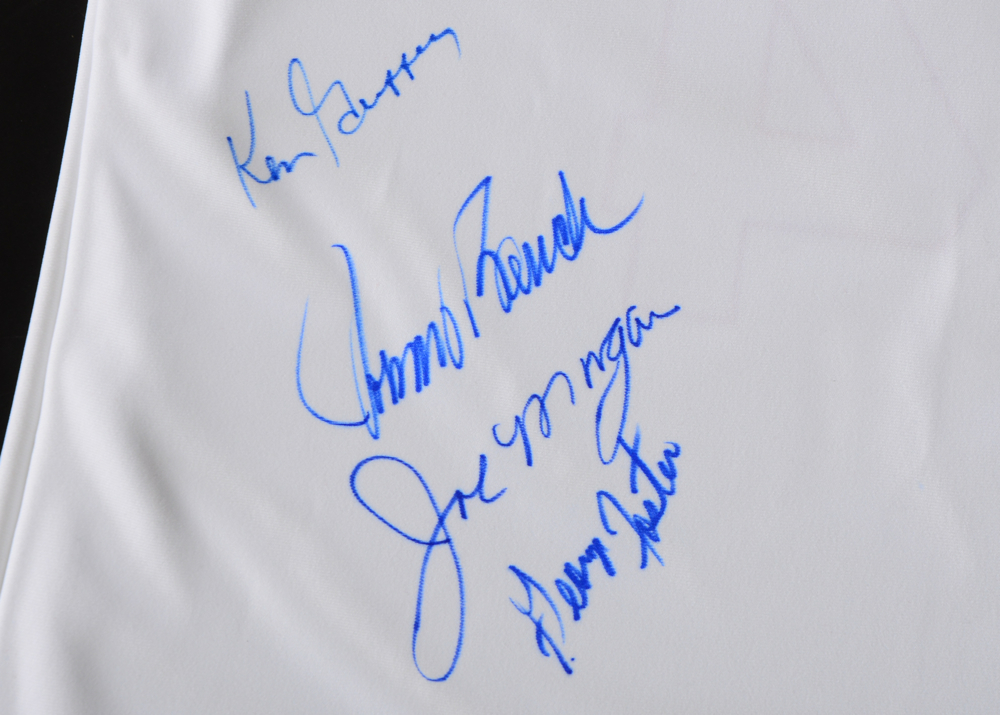 Ken Griffey
Johnny Bench
Joe Morgan
George Foster